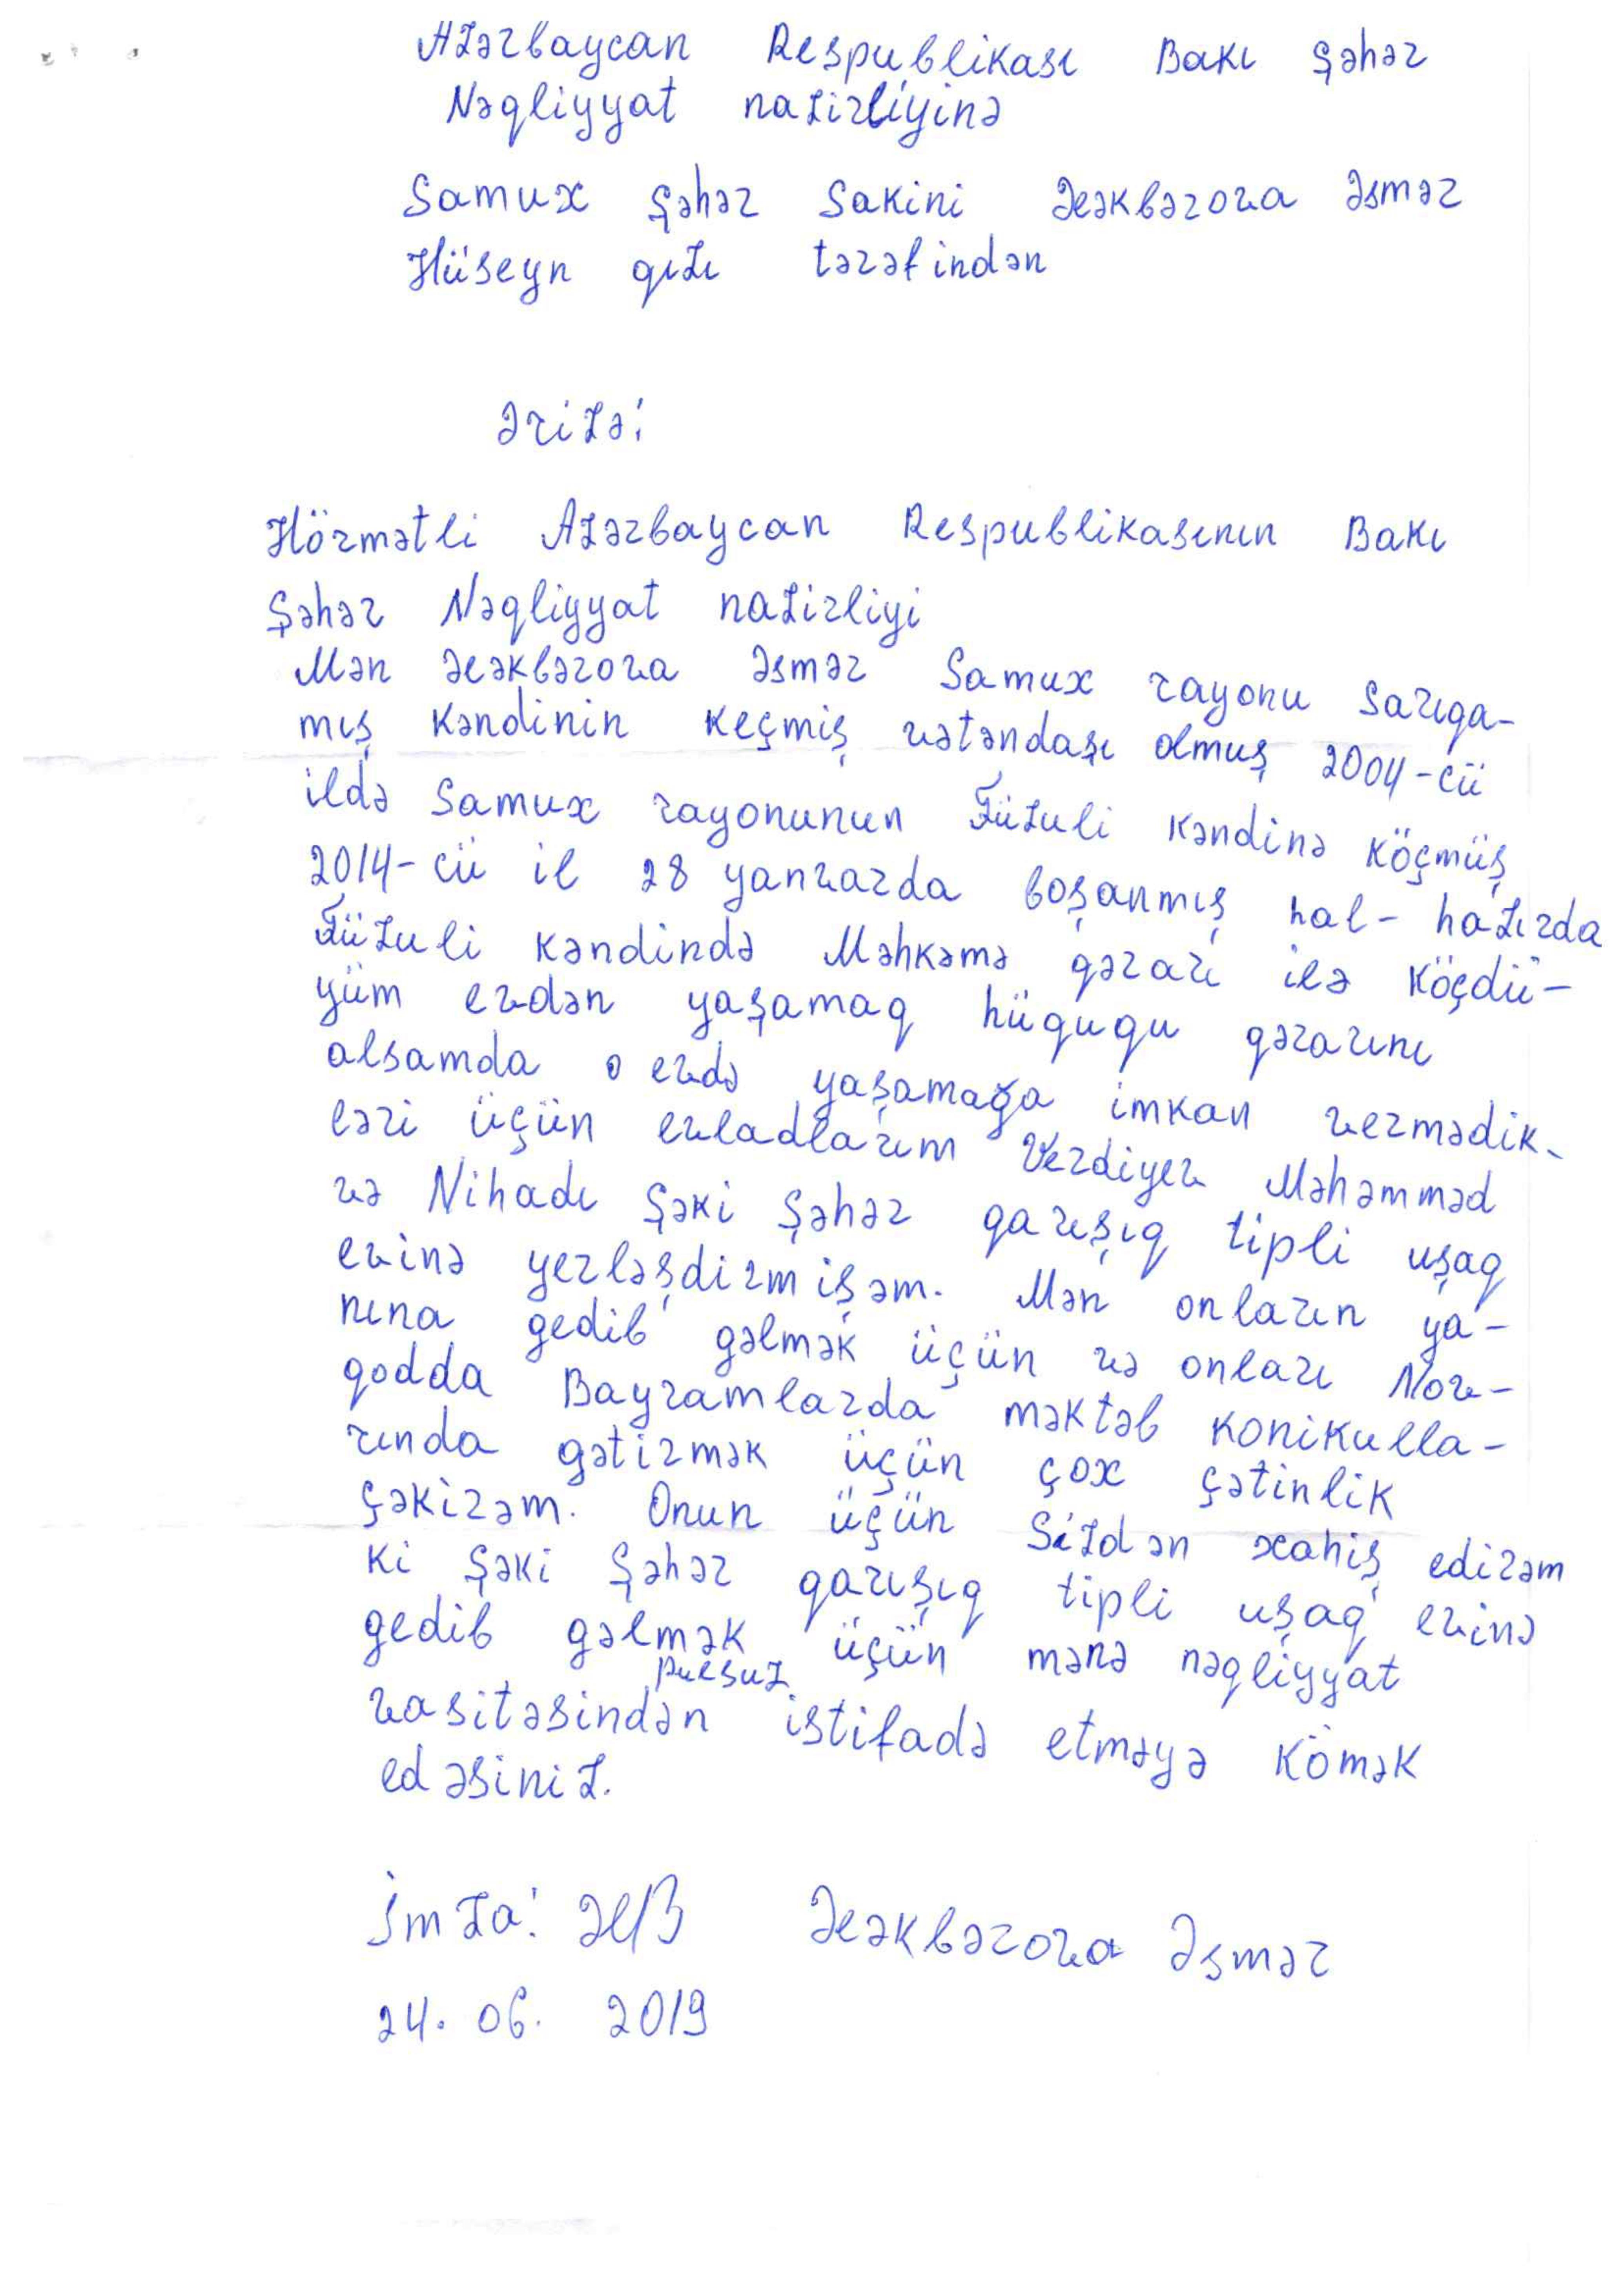 Azərbaycan Respublikası Bakı Şəhər
Nəqliyyat nazirliyinə
Samux Şəhər Sakini Ələkbərova Əsmər
Hüseyn qızı tərəfindən
Ərizə!
Hörmətli Azərbaycan Respublikasının Bakı
Şəhər Nəqliyyat nazirliyi
Mən Ələkbərova Əsmər Samux rayonu Sarıqa-
mış kəndinin keçmiş vətəndaşı olmuş 2004-cü
ildə Samux rayonunun Füzuli kəndinə köçmüş
2014-cü il 28 yanvarda boşanmış hal-hazırda
Füzuli kəndində Məhkəmə qərarı ilə köçdü-
yüm evdən yaşamaq hüququ qərarını
alsamda o evdə yaşamağa imkan vermədik-
ləri üçün evladlarım Verdiyev Məhəmməd
və Nihadı Şəki Şəhər qarışıq tipli uşaq
evinə yerləşdirmişəm. Mən onların ya-
nına gedib gəlmək üçün və onları Nov-
qodda Bayramlarda məktəb konikulla-
rında gətirmək üçün çox çətinlik
çəkirəm. Onun üçün Sizdən xahiş edirəm
ki Şəki Şəhər qarışıq tipli uşaq evinə
gedib gəlmək üçün mənə nəqliyyat
vasitəsindən pulsuz istifadə etməyə kömək
edəsiniz.
İmza! ƏB Ələkbərova Əsmər
24.06.2019